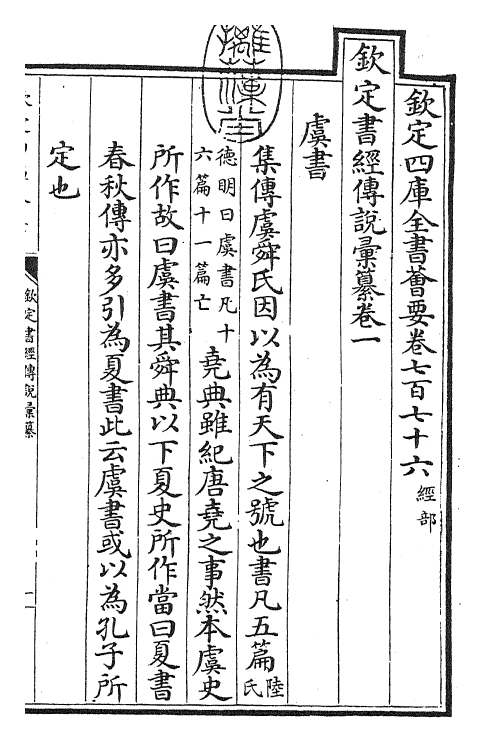 欽定四庫全書薈要卷七百七十六 經部
欽定書經傳說彙纂卷一
虞書
集傳虞舜氏因以為有天下之號也書凡五篇 陸氏
德明曰虞書凡十六篇十一篇亡 堯典雖紀唐堯之事然本虞史
所作故曰虞書其舜典以下夏史所作當曰夏書
春秋傳亦多引為夏書此云虞書或以為孔子所
定也
欽定書經傳說彙纂
一